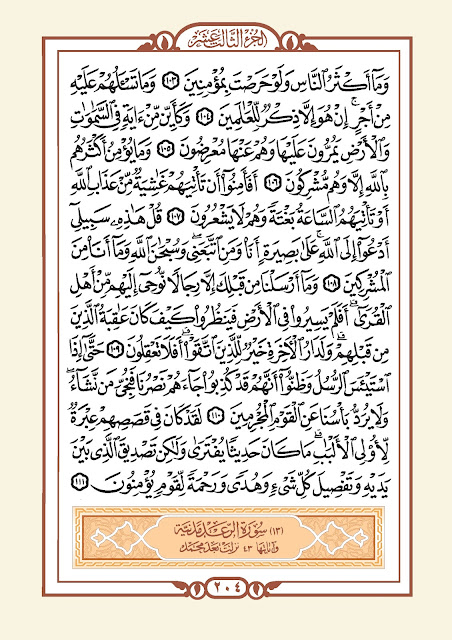 الجزء الثالث عشر
وَمَآ أَكۡثَرُ ٱلنَّاسِ وَلَوۡ حَرَصۡتَ بِمُؤۡمِنِينَ ١٠٣ وَمَا تَسۡـَٔلُهُمۡ عَلَيۡهِ
مِنۡ أَجۡرٍۚ إِنۡ هُوَ إِلَّا ذِكۡرٞ لِّلۡعَٰلَمِينَ ١٠٤ وَكَأَيِّن مِّنۡ ءَايَةٖ فِي ٱلسَّمَٰوَٰتِ
وَٱلۡأَرۡضِ يَمُرُّونَ عَلَيۡهَا وَهُمۡ عَنۡهَا مُعۡرِضُونَ ١٠٥ وَمَا يُؤۡمِنُ أَكۡثَرُهُم
بِٱللَّهِ إِلَّا وَهُم مُّشۡرِكُونَ ١٠٦ أَفَأَمِنُوٓاْ أَن تَأۡتِيَهُمۡ غَٰشِيَةٞ مِّنۡ عَذَابِ ٱللَّهِ
أَوۡ تَأۡتِيَهُمُ ٱلسَّاعَةُ بَغۡتَةٗ وَهُمۡ لَا يَشۡعُرُونَ ١٠٧ قُلۡ هَٰذِهِۦ سَبِيلِيٓ
أَدۡعُوٓاْ إِلَى ٱللَّهِۚ عَلَىٰ بَصِيرَةٍ أَنَا۠ وَمَنِ ٱتَّبَعَنِيۖ وَسُبۡحَٰنَ ٱللَّهِ وَمَآ أَنَا۠ مِنَ
ٱلۡمُشۡرِكِينَ ١٠٨ وَمَآ أَرۡسَلۡنَا مِن قَبۡلِكَ إِلَّا رِجَالٗا نُّوحِيٓ إِلَيۡهِم مِّنۡ أَهۡلِ
ٱلۡقُرَىٰٓۗ أَفَلَمۡ يَسِيرُواْ فِي ٱلۡأَرۡضِ فَيَنظُرُواْ كَيۡفَ كَانَ عَٰقِبَةُ ٱلَّذِينَ
مِن قَبۡلِهِمۡۗ وَلَدَارُ ٱلۡأٓخِرَةِ خَيۡرٞ لِّلَّذِينَ ٱتَّقَوۡاْۚ أَفَلَا تَعۡقِلُونَ ١٠٩ حَتَّىٰٓ إِذَا
ٱسۡتَيۡـَٔسَ ٱلرُّسُلُ وَظَنُّوٓاْ أَنَّهُمۡ قَدۡ كُذِبُواْ جَآءَهُمۡ نَصۡرُنَا فَنُجِّيَ مَن نَّشَآءُۖ
وَلَا يُرَدُّ بَأۡسُنَا عَنِ ٱلۡقَوۡمِ ٱلۡمُجۡرِمِينَ ١١٠ لَقَدۡ كَانَ فِي قَصَصِهِمۡ عِبۡرَةٞ
لِّأُوْلِي ٱلۡأَلۡبَٰبِۗ مَا كَانَ حَدِيثٗا يُفۡتَرَىٰ وَلَٰكِن تَصۡدِيقَ ٱلَّذِي بَيۡنَ
يَدَيۡهِ وَتَفۡصِيلَ كُلِّ شَيۡءٖ وَهُدٗى وَرَحۡمَةٗ لِّقَوۡمٖ يُؤۡمِنُونَ ١١١
(١٣) سورة الرعد مدنية
وآياتها ٤٣ نزلت بعد محمد
٢٠٤